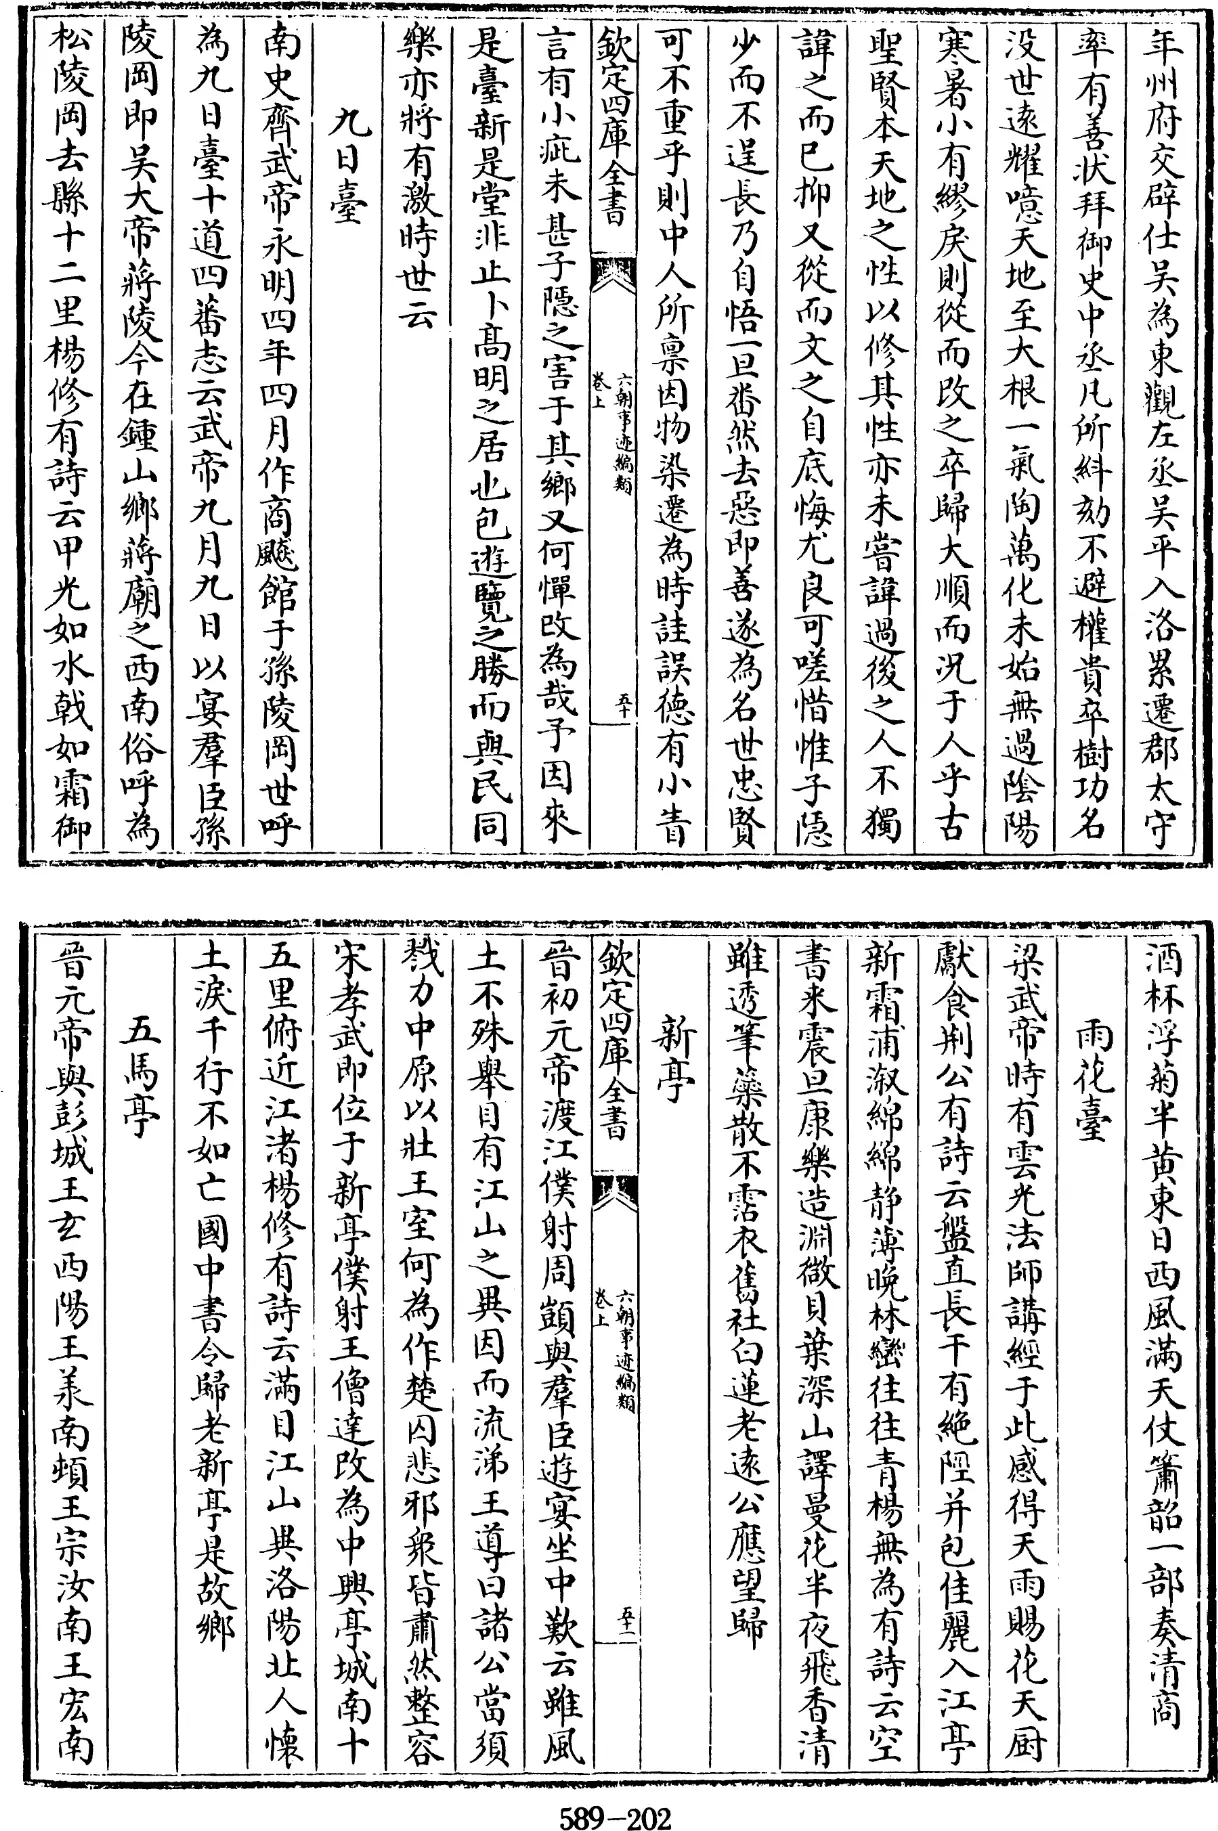 年州府交辟仕吴為東觀左丞吴平入洛累遷郡太守
率有善状拜御史中丞凡所糾劾不避權貴卒樹功名
没世遠耀噫天地至大根一氣陶萬化未始無過陰陽
寒暑小有繆戾則從而改之卒歸大順而况于人乎古
聖賢本天地之性以修其性亦未嘗諱過後之人不獨
諱之而已抑又從而文之自底悔尤良可嗟惜惟子隱
少而不逞長乃自悟一旦畨然去惡即善遂為名世忠賢
可不重乎則中人所禀因物染遷為時詿誤德有小眚
欽定四庫全書
六朝事迹編類
卷上
五十
言有小疵未甚子隱之害于其鄉又何憚改為哉予因來
是臺新是堂非止卜髙明之居也包遊覽之勝而與民同
樂亦將有激時世云
九日臺
南史齊武帝永明四年四月作商飈館于孫陵岡世呼
為九日臺十道四蕃志云武帝九月九日以宴羣臣孫
陵岡即吴大帝蔣陵今在鍾山鄉蔣廟之西南俗呼為
松陵岡去縣十二里楊修有詩云甲光如水戟如霜御
酒杯浮菊半黄東日西風滿天仗簫韶一部奏清商
雨花臺
梁武帝時有雲光法師講經于此感得天雨賜花天厨
獻食荆公有詩云盤直長干有絶陘并包佳麗入江亭
新霜浦溆綿綿静薄晚林巒往往青楊無為有詩云空
書来震旦康樂造淵微貝葉深山譯曼花半夜飛香清
雖透筆藥散不霑衣舊社白蓮老遠公應望歸
新亭
欽定四庫全書
六朝事迹編類
卷上
五十一
晉初元帝渡江僕射周顗與羣臣遊宴坐中歎云雖風
土不殊舉目有江山之異因而流涕王導曰諸公當須
戮力中原以壯王室何為作楚囚悲邪衆皆肅然整容
宋孝武即位于新亭僕射王僧達改為中興亭城南十
五里俯近江渚楊修有詩云滿目江山異洛陽北人懐
土淚千行不如亡國中書令歸老新亭是故鄉
五馬亭
晉元帝與彭城王玄西陽王羕南頓王宗汝南王宏南
589-202